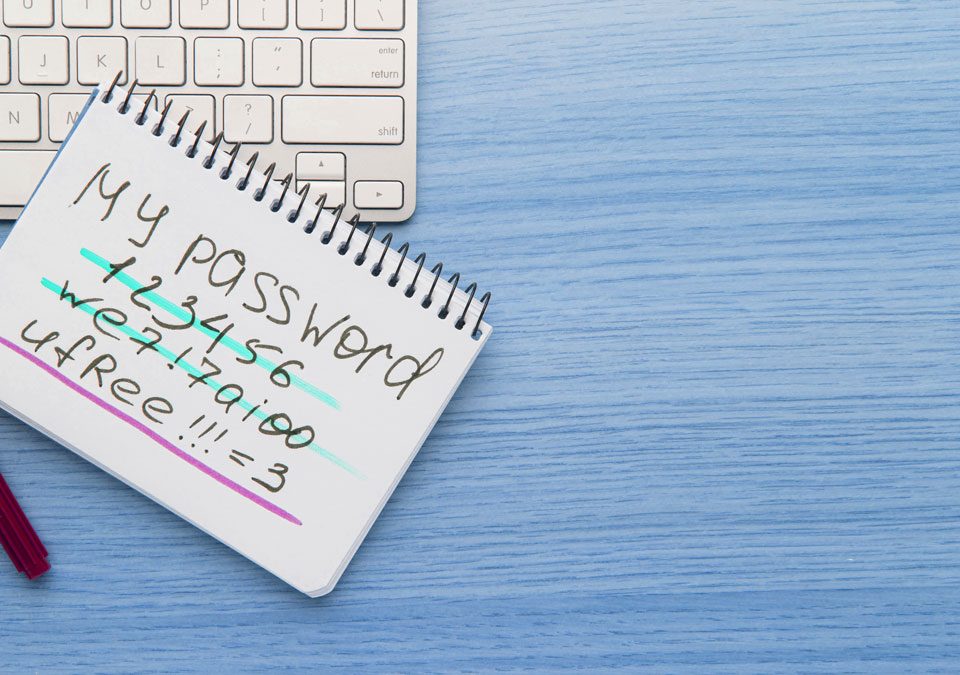 U I O P { [ } ] | \
J K L : ; " '
enter
return
N M ? /
shift
My password
123456
we7!7aioo
ufRee!!!=3